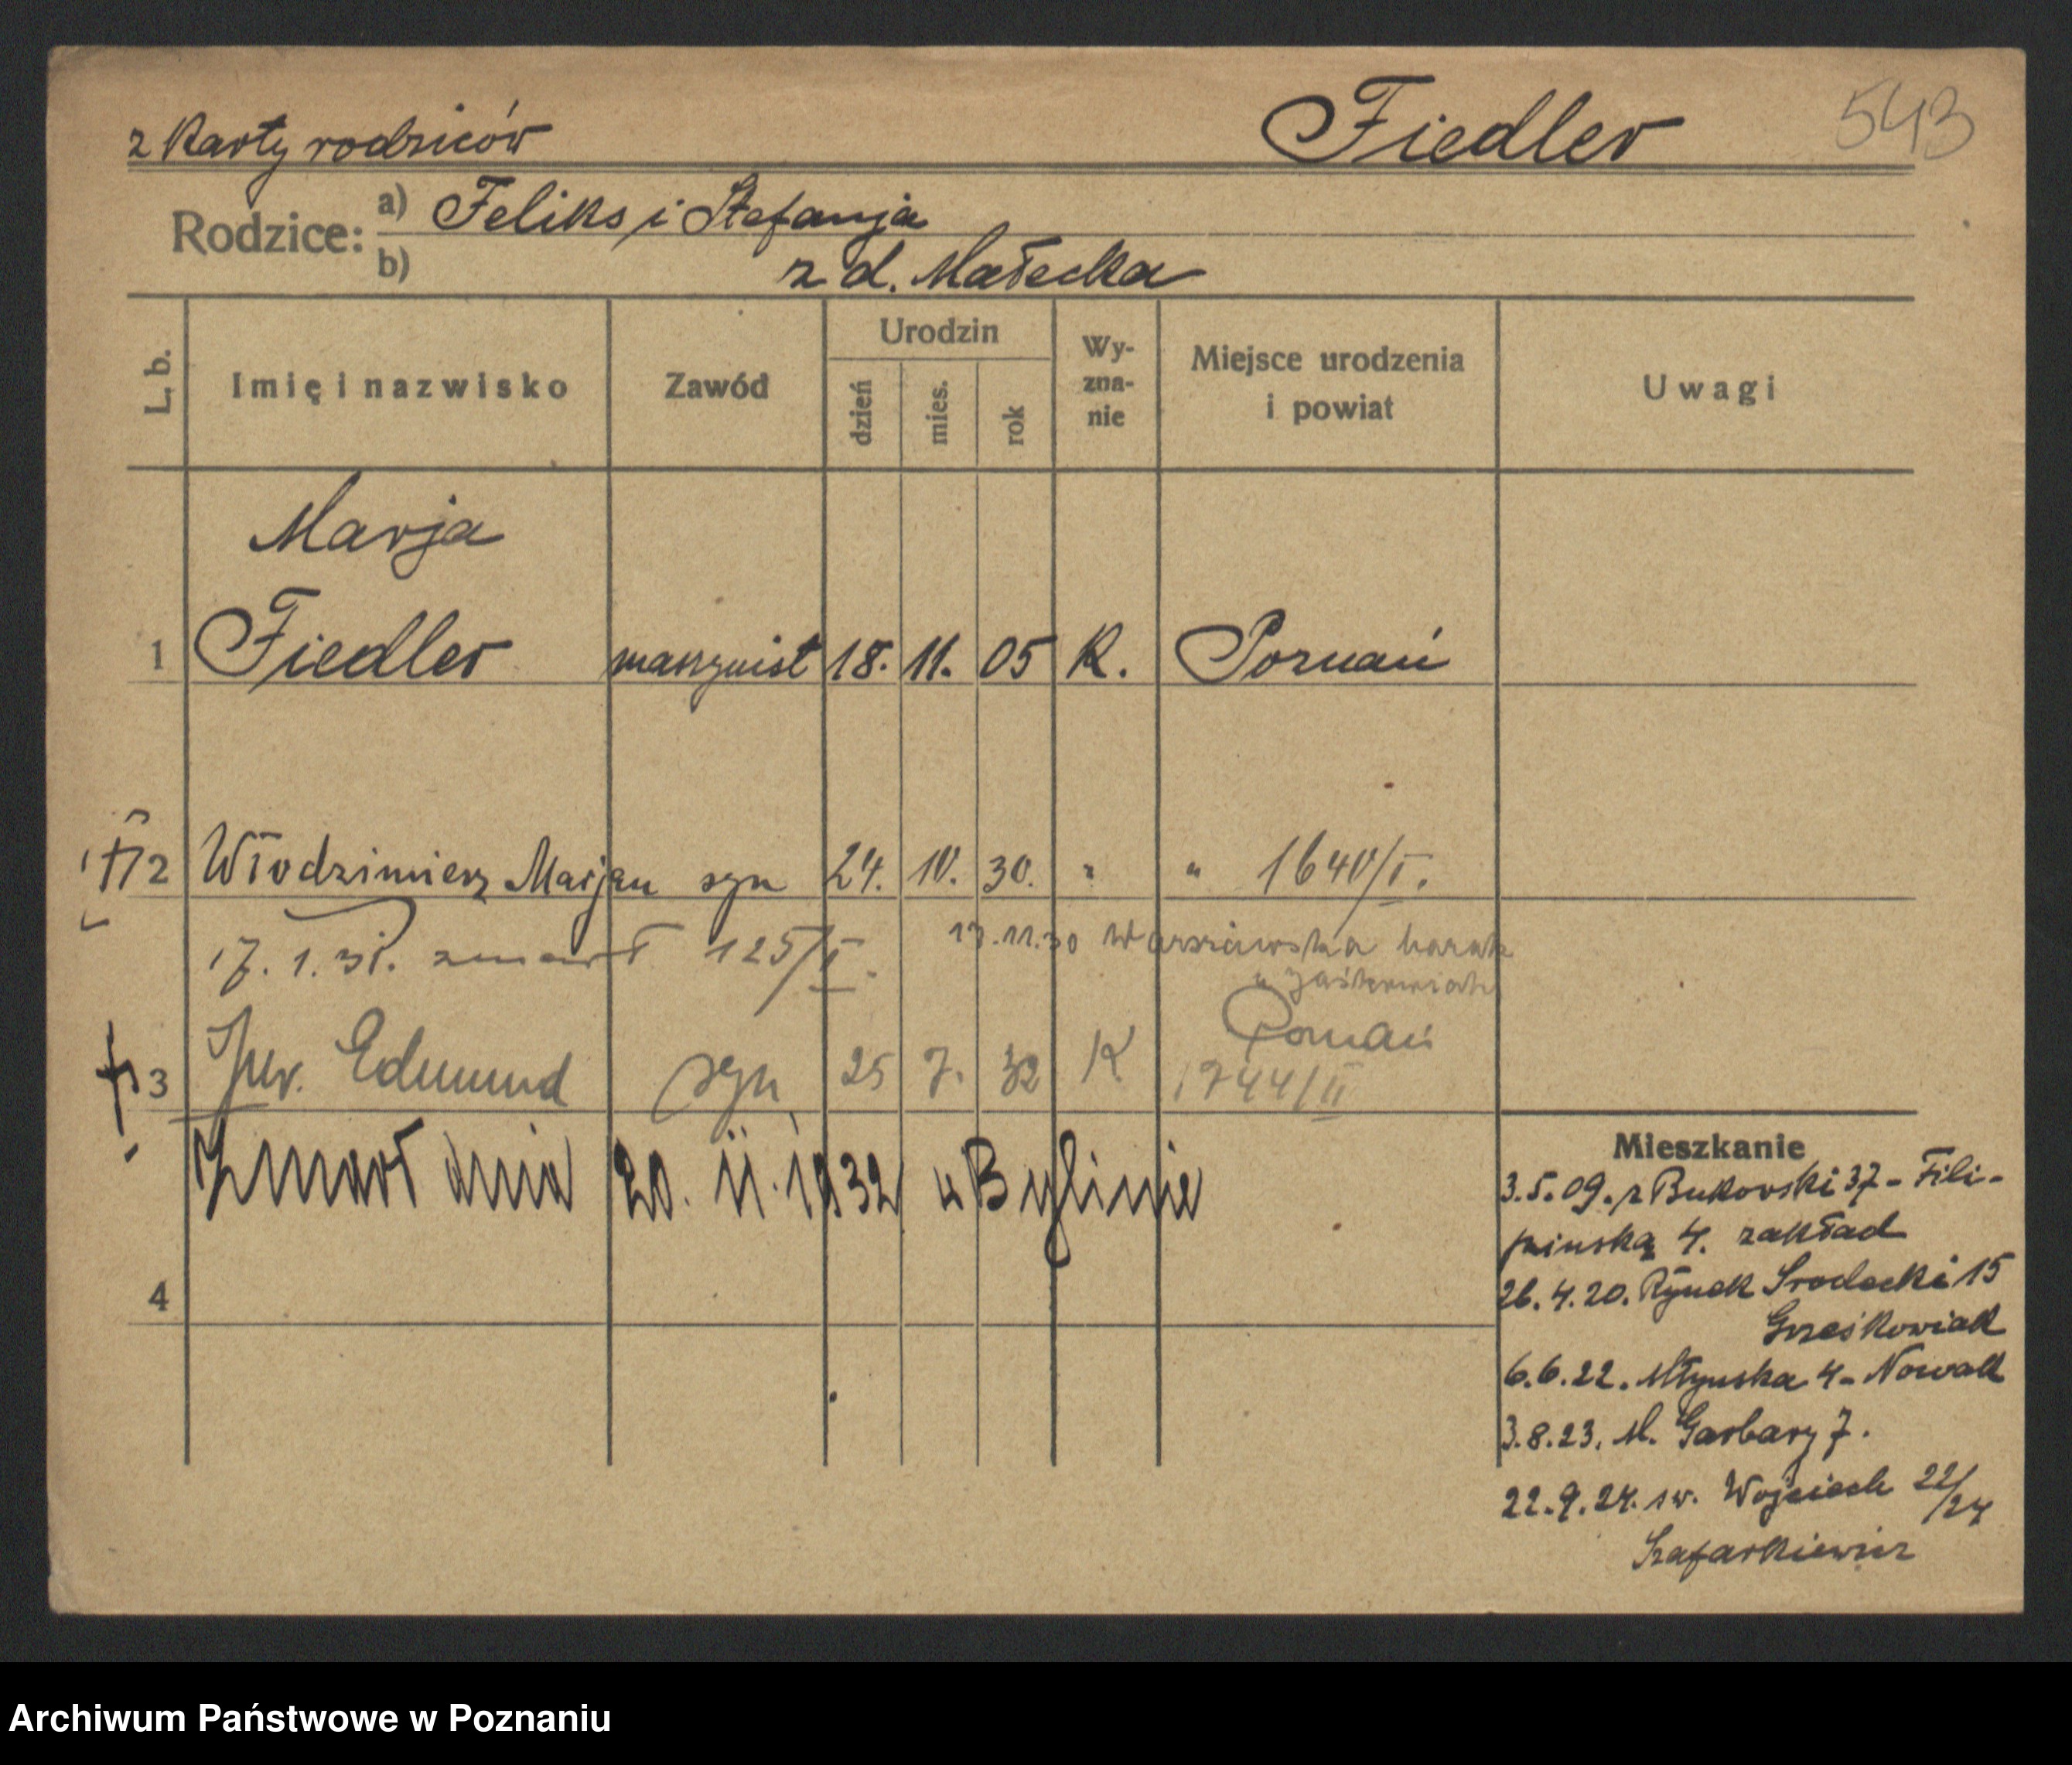 z Karty rodziców
Fiedler
543
Rodzice:
a) Feliks i Stefanja
b) z d. Małecka
L. b.
Imię i nazwisko
Zawód
Urodzin
dzień
mies.
rok
Wy-
zna-
nie
Miejsce urodzenia
i powiat
Uwagi
Marja
1 Fiedler maszynist 18. 11. 05 K. Poznań
2 Włodzimierz Marjan syn 24. 10. 30. " " 1640/I.
17. 1. 31. zmarł 125/I.
13.11.30 Warszawska barak
u Jaśkowiak
Poznań
3 Jer. Edmund syn 25 7. 32 K 1744/II
Zmarł dnia 20. 11. 1932 w Bylinie
4
Mieszkanie
3.5.09. z Bukowski 37 - Fili-
pinską 4. zakład
26.4.20. Rynek Srodecki 15
Grześkowiak
6.6.22. Młyńska 4 - Nowak
3.8.23. M. Garbary 7.
22.9.24. sw. Wojciech 22/24
Szafarkiewicz
Archiwum Państwowe w Poznaniu